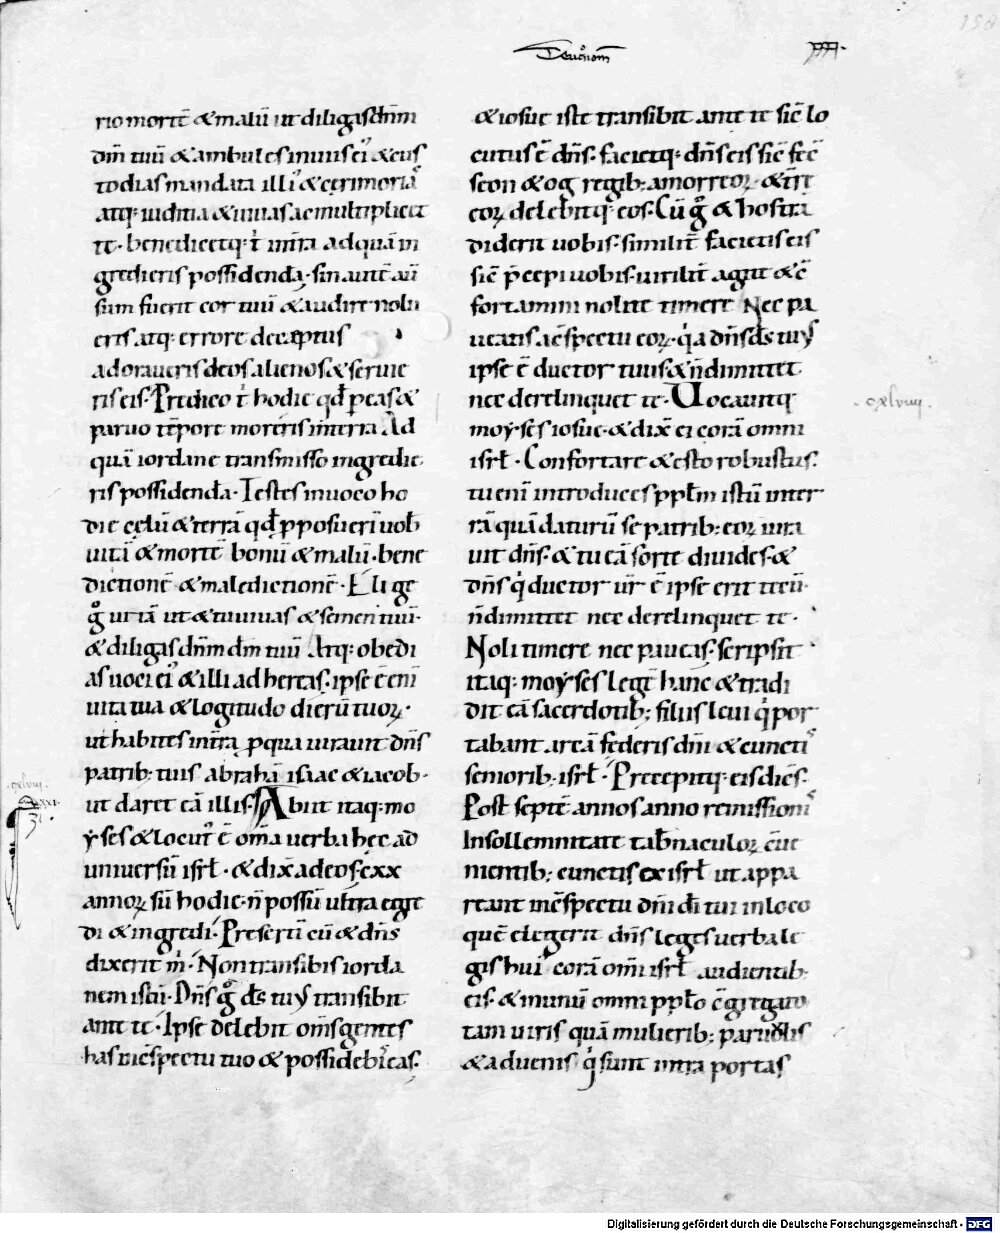 Deut͛onom̄
rio mortē & malū ut diligas dn̄m
dm̄ tuū & ambules in uiis ei᾽ & cus
todias mandata illi᾽ & cerimonias
atq; iudicia & uiuas ac multiplicet
te· benedicetq; t̓ in tr̄a ad quā in
gredieris possidendā· sin autē auer
sum fuerit cor tuū & audire nolu
eris atq; errore deceptus
adoraueris deos alienos & seruie
ris eis· Predico t̓ hodie qđ pereas &
paruo tēpore moreris in terra Ad
quā iordane transmisso ingredie
ris possidendā· Testes inuoco ho
die cęlū & terrā qđ ꝓposuerī uob̄
uitā & mortē bonū & malū· bene
dictionē & maledictionē· Elige
g̊ uitā ut & tu uiuas & semen tuū·
& diligas dn̄m dm̄ tuū Atq; obedi
as uoci ei᾽ & illi adhereas· ipse ē enī
uita tua & lōgitudo dierū tuoꝝ·
ut habites in tr̄a ꝓ qua iurauit dn̄s
patrib; tuis abrahā isaac & iacob·
ut daret eā illis· Abiit itaq; mo
yses & locut᾽ ē om̄a uerba hęc ad
uniuersū isrł· & dix̄ ad eos· cxx
annoꝝ sū hodie· n̄ possū ultra egre
di & ingredi· Presertī cū & dn̄s
dixerit m̓· Non transibis iorda
nem istū· Dn̄s g̊ ds̄ tuus transibit
ante te· Ipse delebit om̄s gentes
has in c̄spectu tuo & possidebis eas·
& iosue iste transibit ante te sic̄ lo
cutus ē dn̄s· facietq; dn̄s eis sic̄ fec̄
seon & og regib; amorreoꝝ & tr̄e
eoꝝ delebitq; eos· Cū g̊ & hos tra
diderit uobis· similit̄ facietis eis
sic̄ p̄cepi uobis· uirilit̄ agite & c̄
fortamini nolite timere Nec pa
ueatis a c̄spectu eoꝝ· q̓a dn̄s ds̄ tuus
ipse ē ductor tuus & n̄ dimittet
nec derelinquet te· Uocauitq;
moyses iosue· & dix̄ ei corā omni
isrł· Confortare & esto robustus·
tu enī introduces ppłm istū in ter
rā quā daturū se patrib; eoꝝ iura
uit dn̄s· & tu eā sorte diuides· &
dn̄s q̓ ductor ur̄ ē ipse erit tecū·
n̄ dimittet nec derelinquet te·
Noli timere nec paueas· scripsit
itaq; moyses legē hanc & tradi
dit eā sacerdotib; filiis leui q̓ por
tabant arcā federis dn̄i & cunctis
seniorib; isrł· Precepitq; eis dices·
Post septē annos anno remissionis
In sollemnitate tab̄naculoꝝ c̄ue
nientib; cunctis ex isrł ut appa
reant in c̄spectu dn̄i di̅ tui in loco
quē elegerit dn̄s leges uerba le
gis hui᾽ corā om̄i isrł audientib;
eis & in unū omni ppło c̄gregato
tam uiris quā mulierib; paruulis
& aduenis q̓ sunt intra portas
cxlviiij.
Digitalisierung gefördert durch die Deutsche Forschungsgemeinschaft - DFG